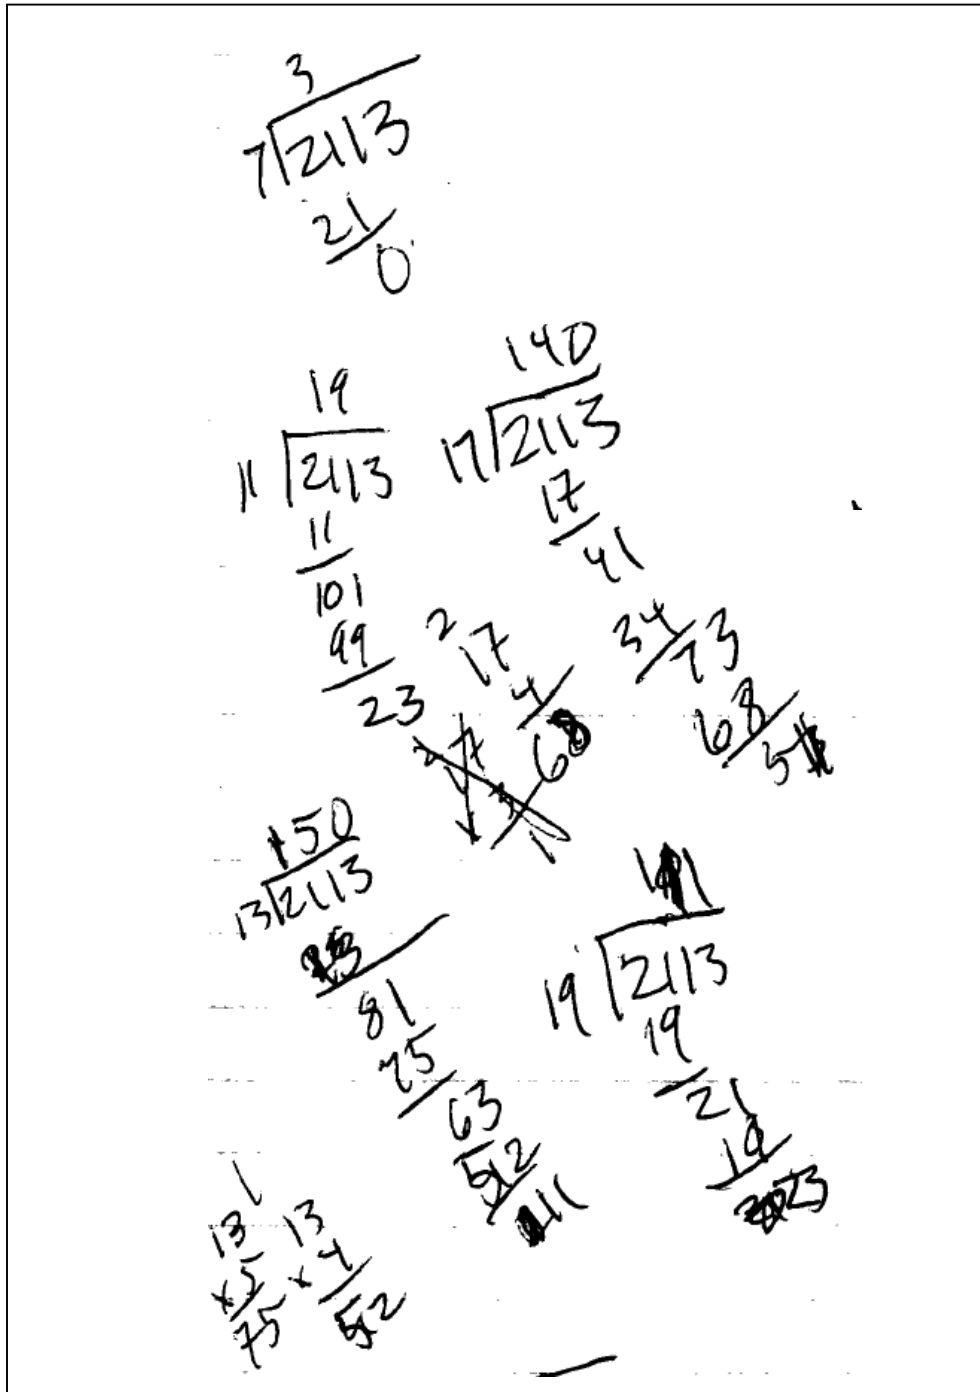 3
7 2113
21
0
19
11 2113
11
101
99
23
140
17 2113
17
41
34
73
68
5
2
17
4
68
150
13 2113
81
75
63
52
11
19 2113
19
21
19
23
1
13
x5
75
13
x4
52